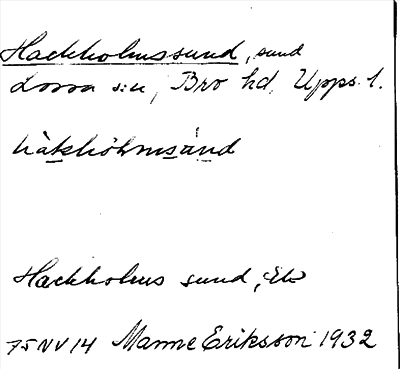 Hackholmssund, sund
Lossa sn, Bro hd, Upps. l.
Hackholms sund, Ek
75NV14 Manne Eriksson 1932